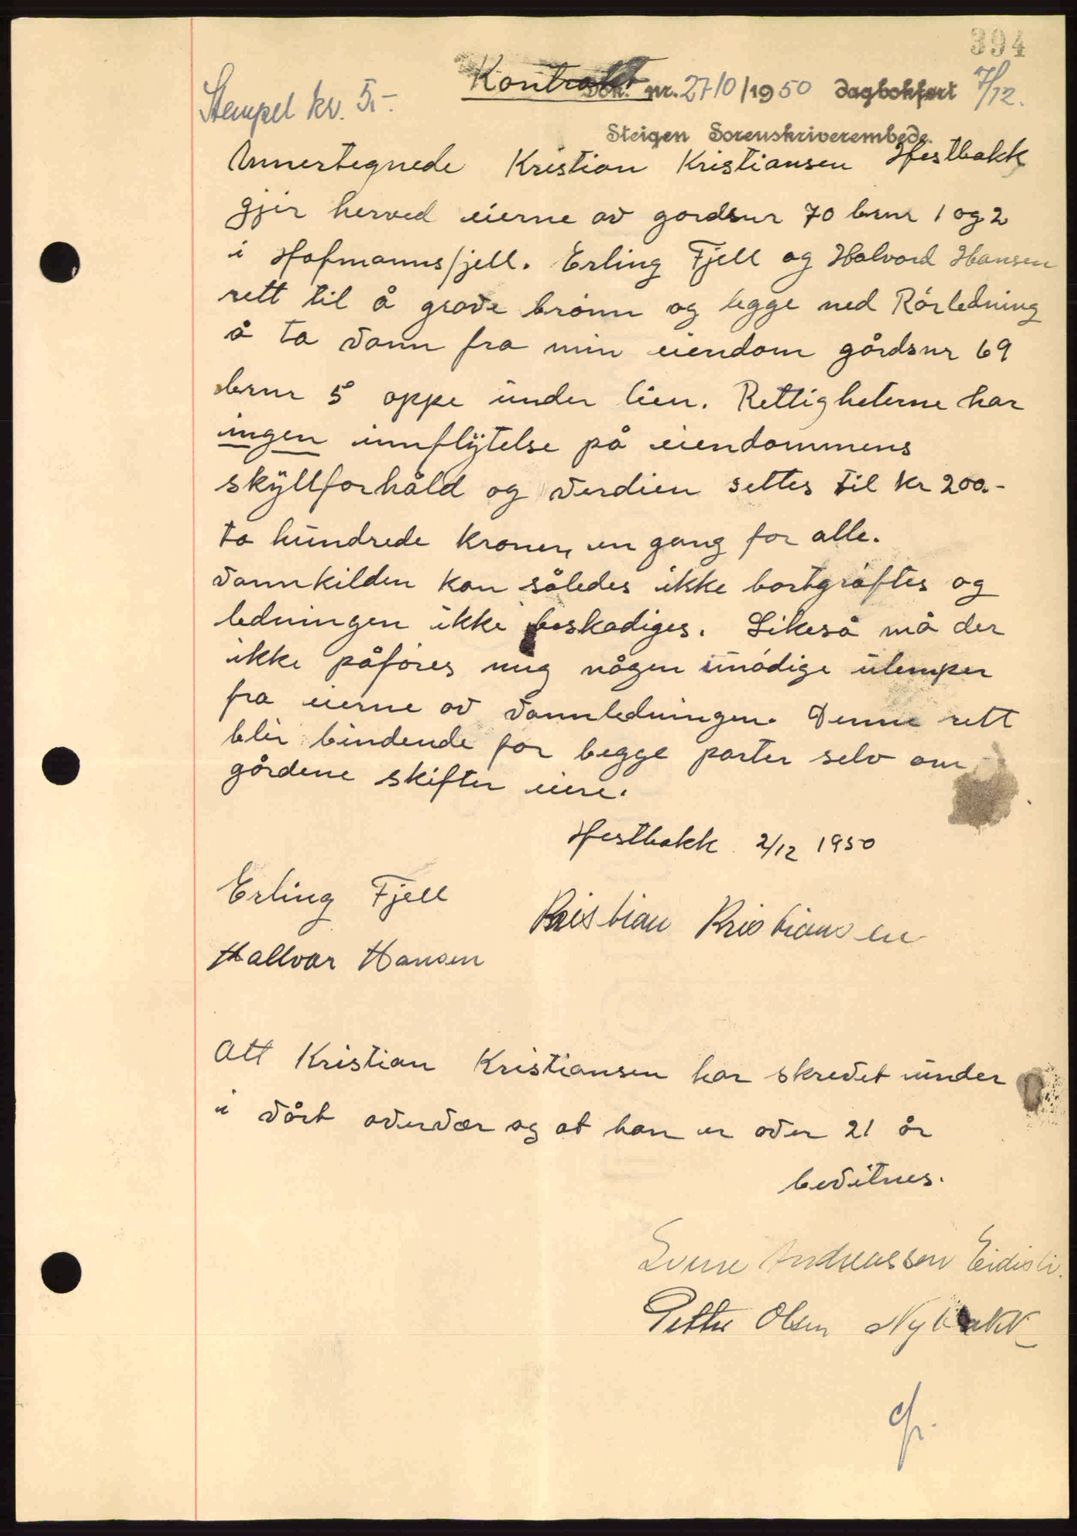 394
Kontrakt
Dok. nr. 2710/1950 dagbokført 7/12.
Stempel kr. 5,-
Steigen Sorenskriverembede.
Unnertegnede Kristian Kristiansen Hestbakk
gjir herved eierne av gordsnr 70 brnr 1 og 2
i Hofmannsfjell. Erling Fjell og Halvard Hansen
rett til å grave brønn og legge ned Rörledning
å ta vann fra min eiendom gårdsnr 69
brnr 5 oppe under lien. Rettigheterne har
ingen innflytelse på eiendommens
skyllforhåld og verdien settes til kr 200.-
to hundrede kroner, en gang for alle.
Vannkilden kan således ikke bortgrøftes og
ledningen ikke beskadiges. Likeså må der
ikke påføres meg någen unødige ulemper
fra eierne av vannledningen. Denne rett
blir bindende for begge parter selv om
gårdene skifter eiere.
Hestbakk 2/12 1950
Erling Fjell
Kristian Kristiansen
Hallvar Hansen
Att Kristian Kristiansen har skrevet under
i vårt overvær og at han er over 21 år
bevitnes.
Andreassen
Petter Olsen Nybakk